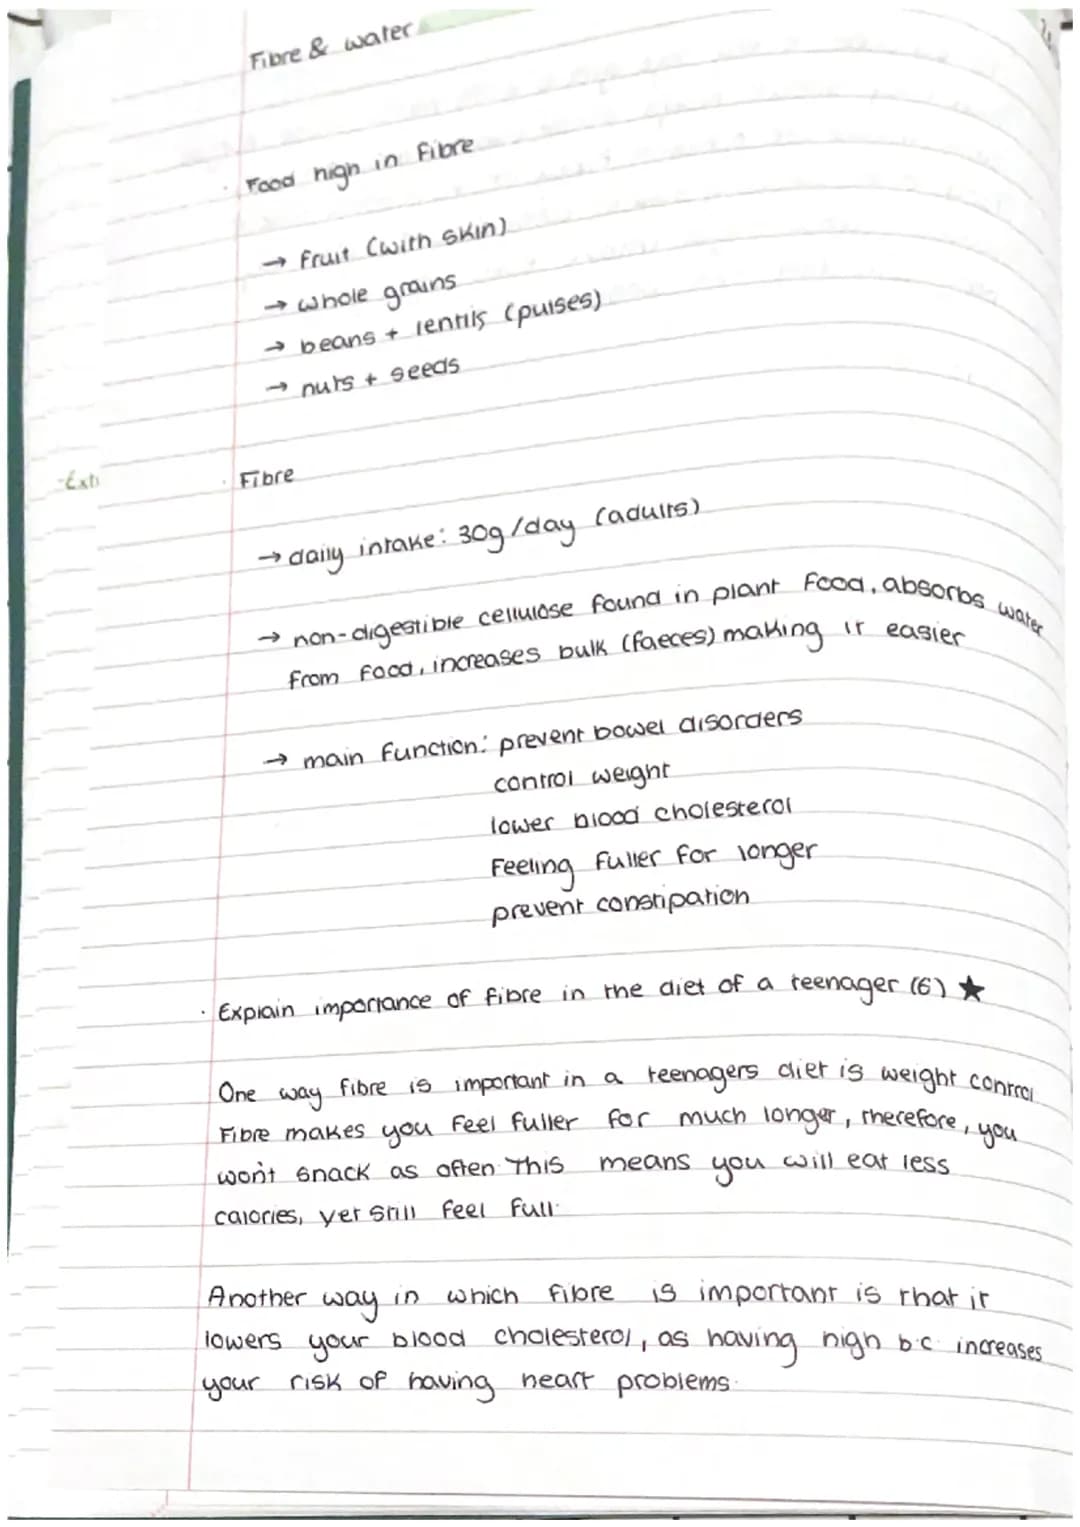 Fibre & water
· Food high in Fibre
→ fruit (with skin)
→ whole grains
→ beans + lentils (pulses)
→ nuts + seeds
· Fibre
→ daily intake: 30g/day (adults)
→ non-digestible cellulose found in plant food, absorbs water
from food, increases bulk (faeces) making it easier
→ main function: prevent bowel disorders
control weight
lower blood cholesterol
Feeling fuller for longer
prevent constipation
· Explain importance of fibre in the diet of a teenager (6) ★
One way fibre is important in a teenagers diet is weight control.
Fibre makes you feel fuller for much longer, therefore, you
won't snack as often. This means you will eat less
calories, yet still feel full.
Another way in which fibre is important is that it
lowers your blood cholesterol, as having high b.c. increases
your risk of having heart problems.